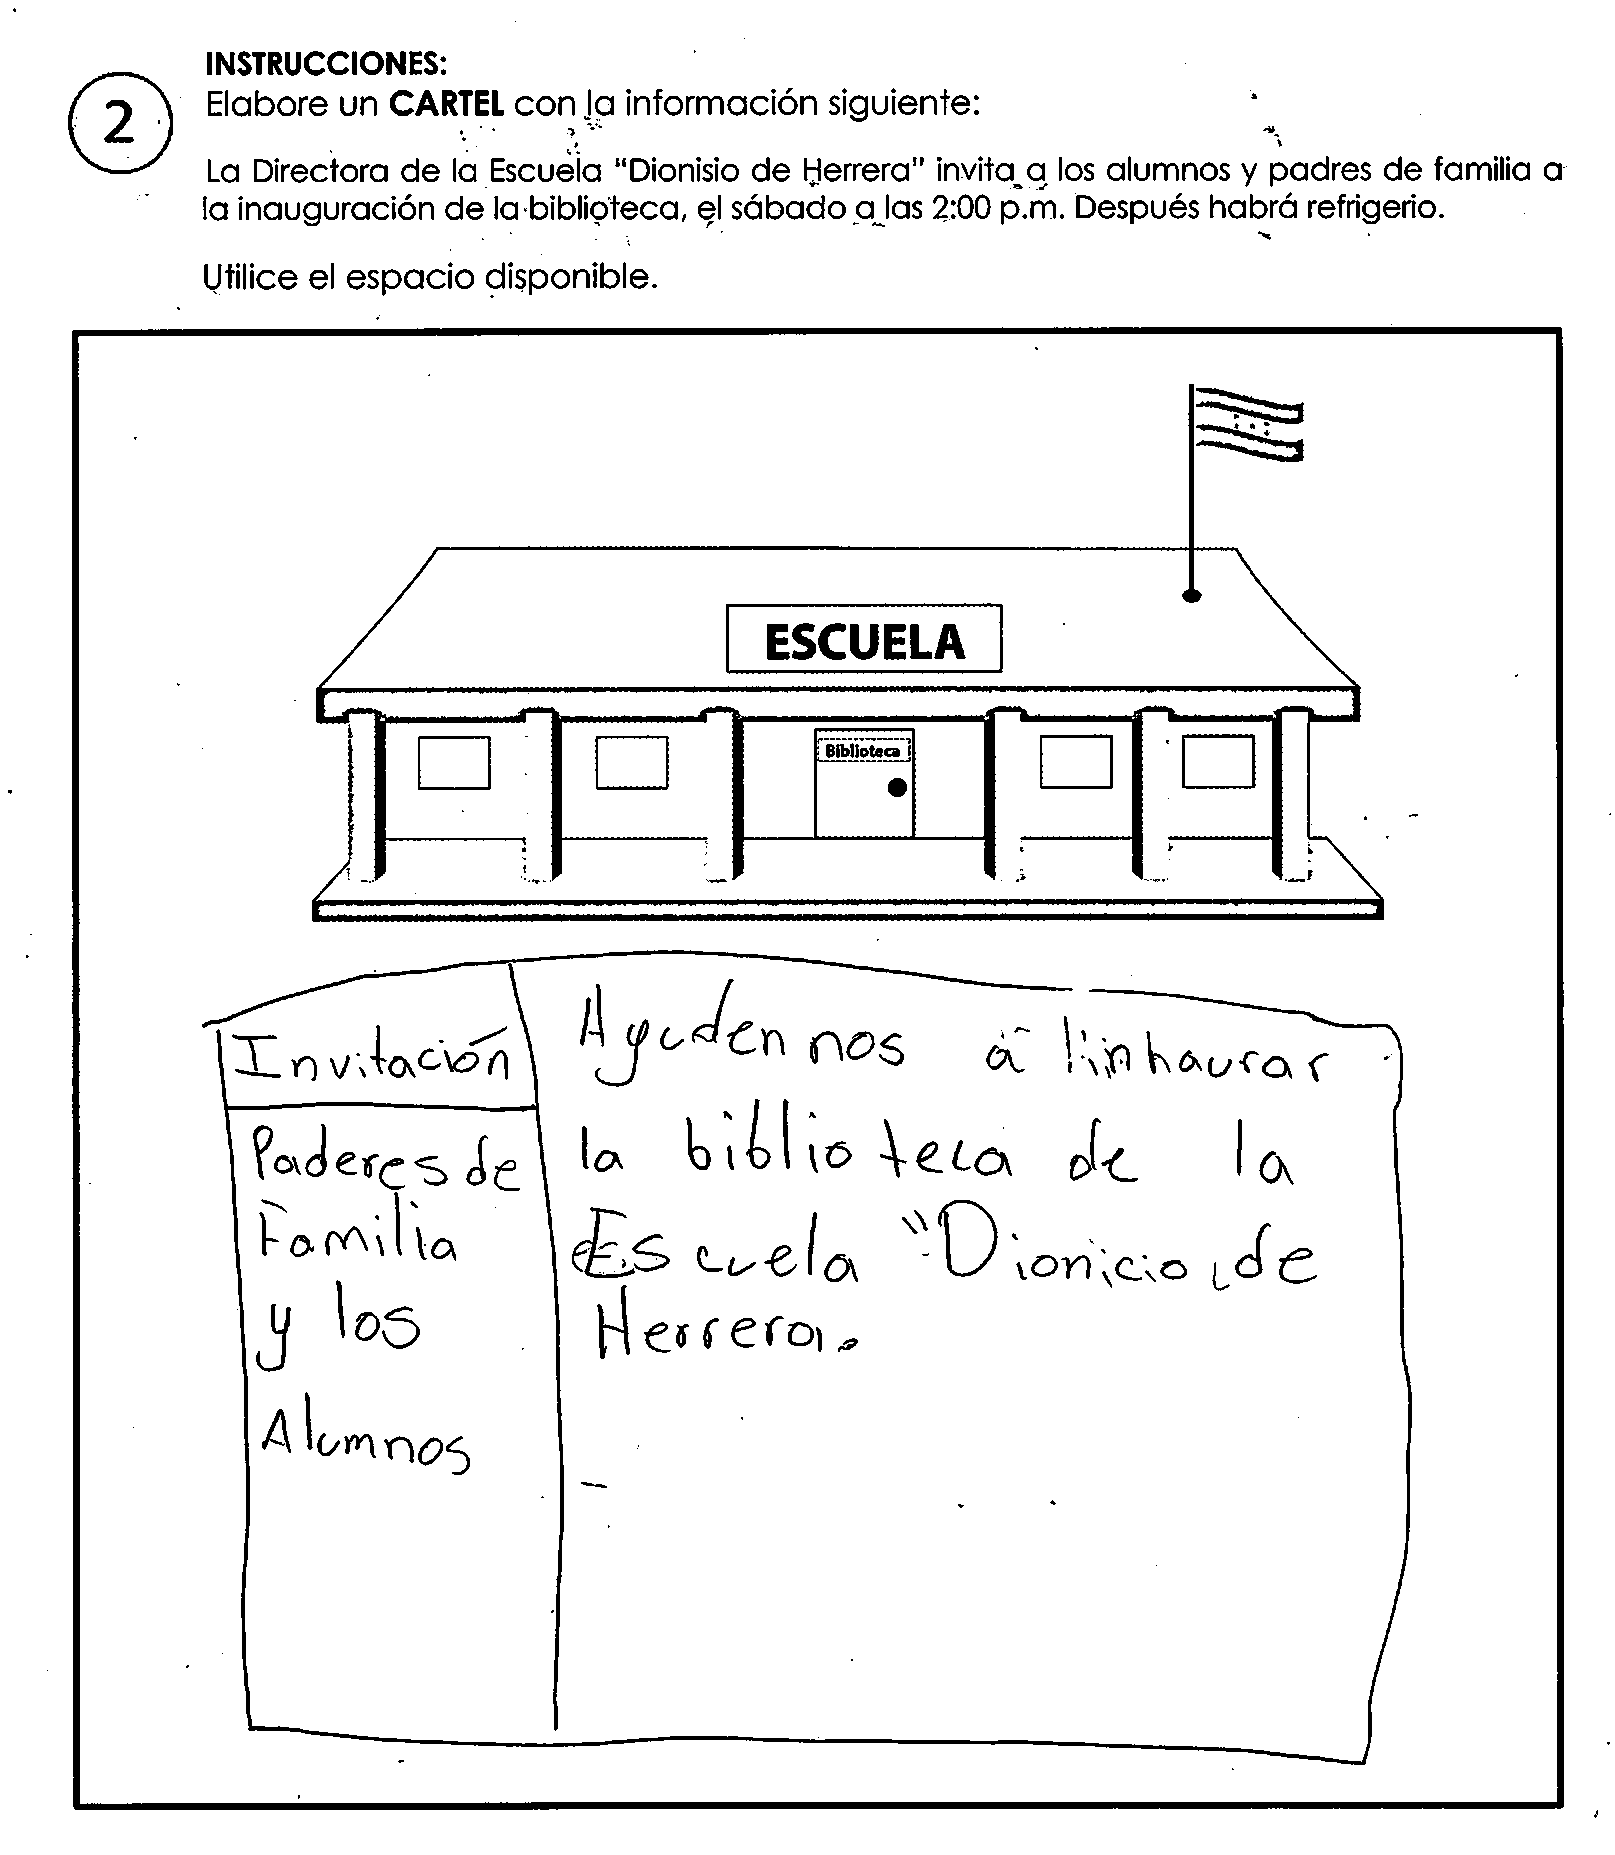 INSTRUCCIONES:
2
Elabore un CARTEL con la información siguiente:
La Directora de la Escuela "Dionisio de Herrera" invita a los alumnos y padres de familia a
la inauguración de la biblioteca, el sábado a las 2:00 p.m. Después habrá refrigerio.
Utilice el espacio disponible.
ESCUELA
Biblioteca
Invitación
Paderes de
Familia
y los
Alumnos
Ayuden nos a linhaurar
la biblioteca de la
Escuela "Dionicio de
Herrera.